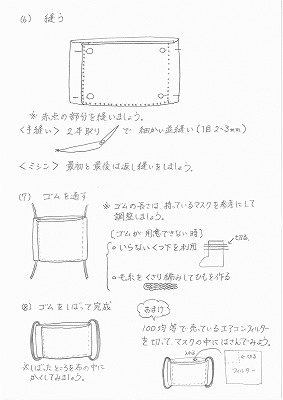 (6) 縫う
※ 赤点の部分を縫いましょう。
<手縫い> 2本取り で 細かい並縫い (1目2~3mm)
<ミシン> 最初と最後は返し縫いをしましょう。
(7) ゴムを通す
※ ゴムの長さは、持っているマスクを参考にして
調整しましょう。
[ゴムが用意できない時]
○ いらないくつ下を利用
切る
○ 毛糸をくさり編みしてひもを作る
(8) ゴムをしばって完成
※しばったところを布の中に
かくしてみましょう。
おまけ
100均等で売っているエアコンフィルター
を切って、マスクの中にはさんでみよう。
入れる
切る
フィルター